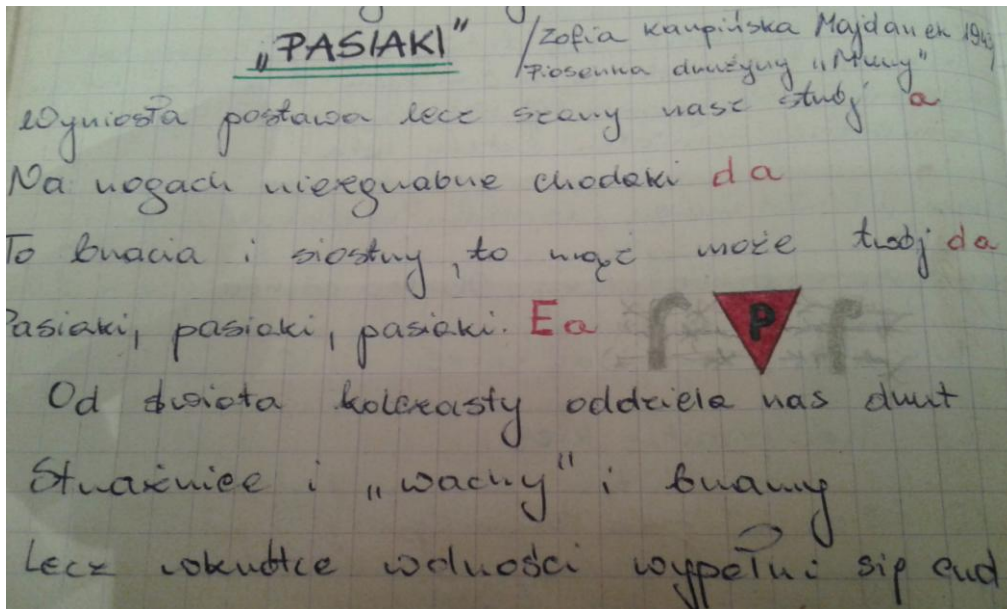 „PASIAKI”
/Zofia Karpińska Majdanek 1943
/Piosenka drużyny „Mury”
Wyniosła postawa lecz szary nasz strój a
Na nogach niezgrabne chodaki d a
To bracia i siostry, to mąż może twój d a
Pasiaki, pasiaki, pasiaki. E a
P
Od świata kolczasty oddziela nas drut
Strażnice i „wachy” i bramy
Lecz wkrótce wolności wypełni się cud